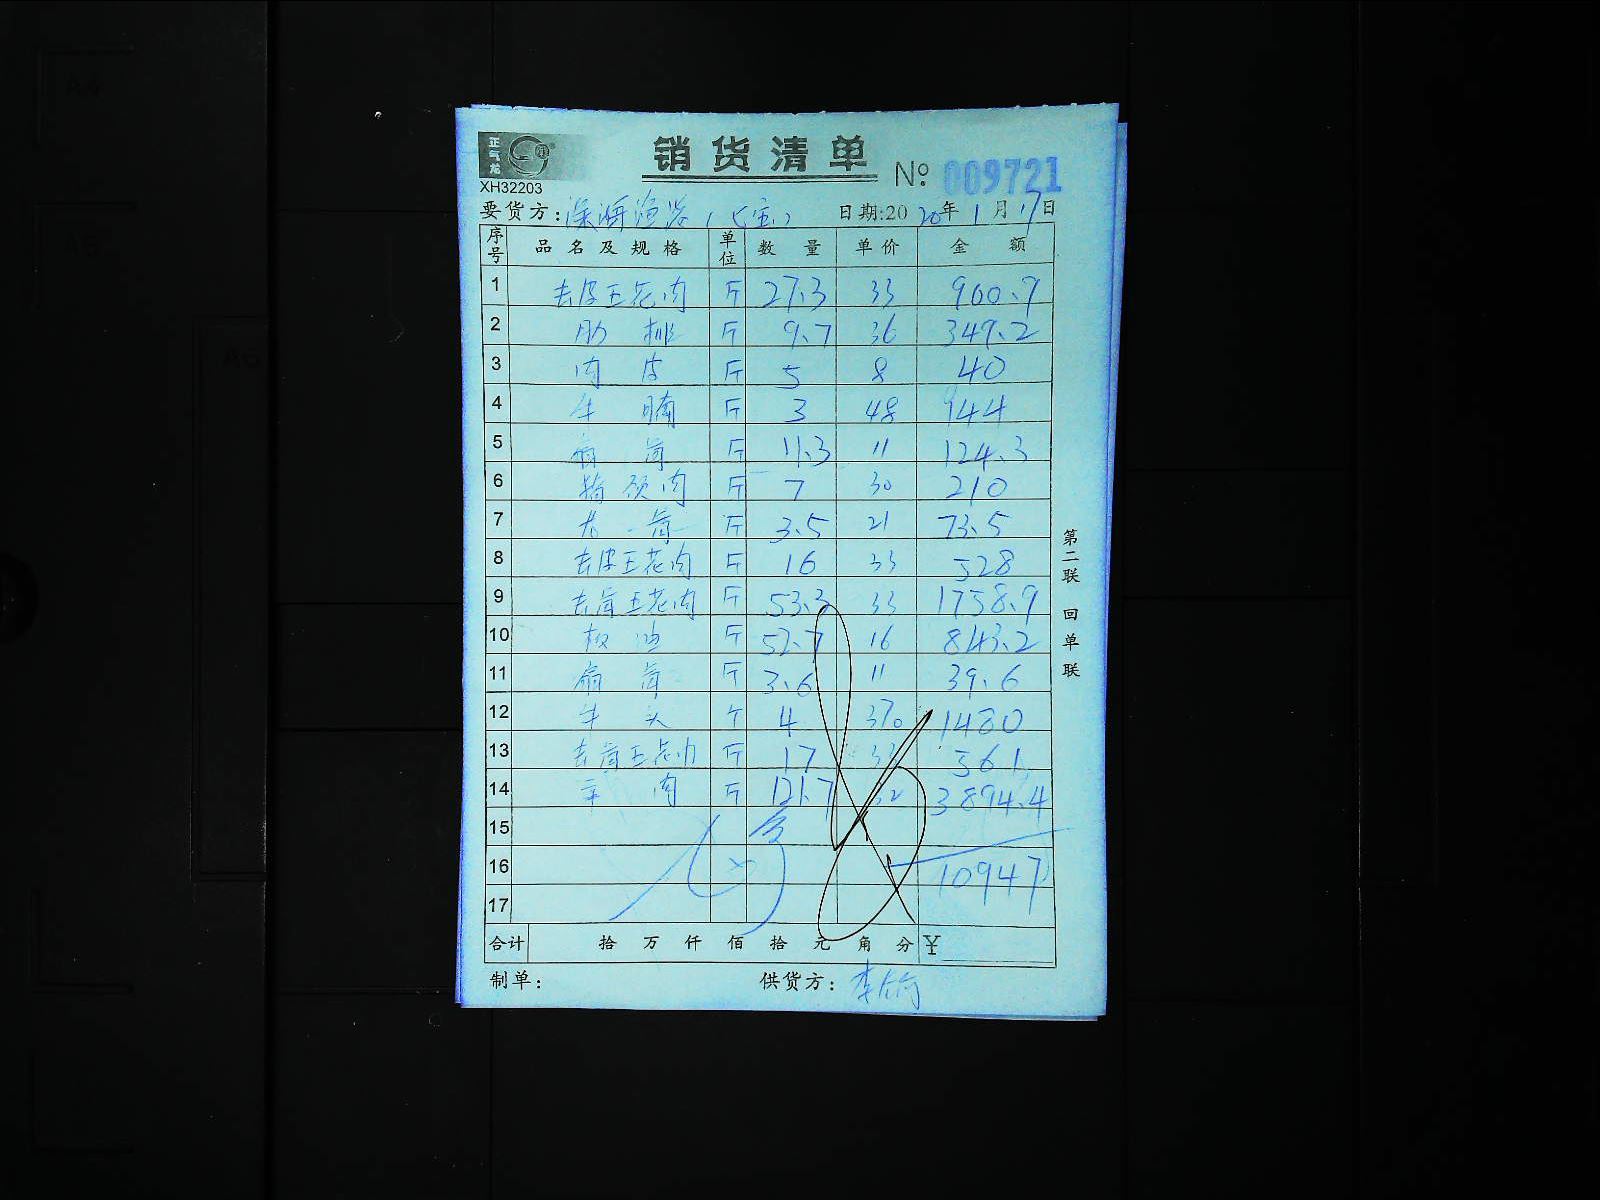 正气龙
销货清单
XH32203
№ 009721
要货方: 日期:2020年1月17日
序号 品名及规格 单位 数量 单价 金额
1 去皮五花肉 斤 27.3 33 900.9
2 肋排 斤 9.7 36 349.2
3 肉皮 斤 5 8 40
4 牛腩 斤 3 48 144
5 扇骨 斤 11.3 11 124.3
6 猪颈肉 斤 7 30 210
7 龙骨 斤 3.5 21 73.5
8 去皮五花肉 斤 16 33 528
9 去骨五花肉 斤 53.3 33 1758.9
10 板油 斤 52.7 16 843.2
11 扇骨 斤 3.6 11 39.6
12 牛头 个 4 370 1480
13 去骨五花肉 斤 17 33 561
14 羊肉 斤 121.7 32 3894.4
15
16 10947
17
合计 拾 万 仟 佰 拾 元 角 分 ¥
制单: 供货方: 李
第二联 回单联